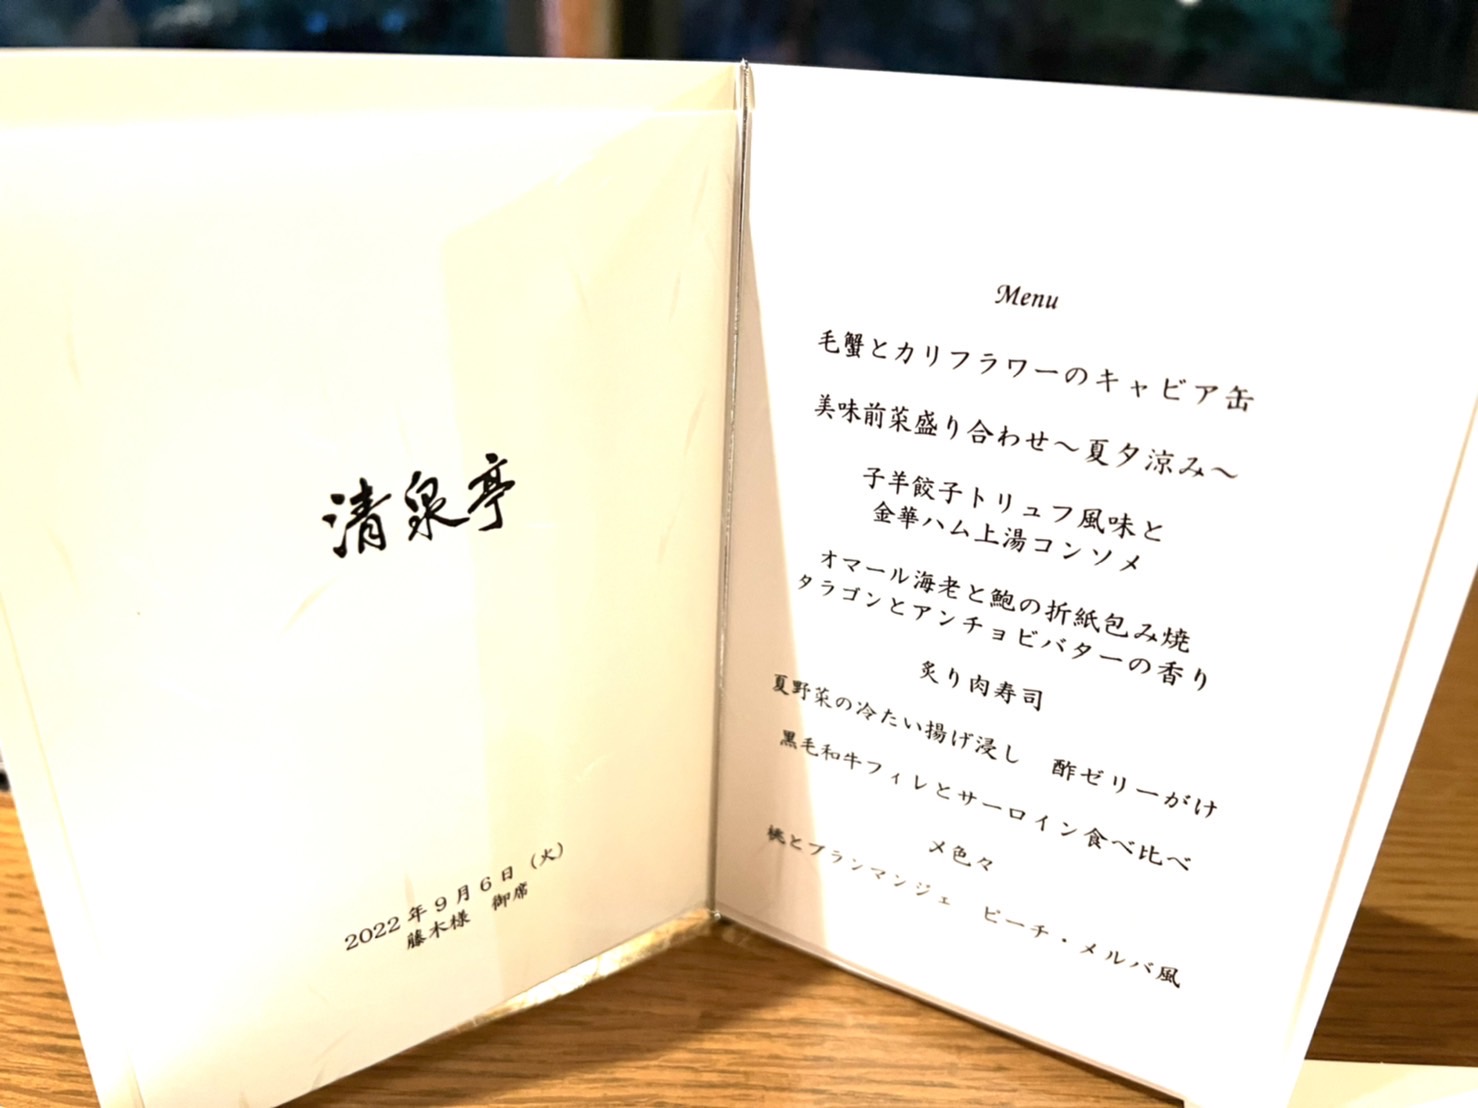 清泉亭
2022年9月6日（火）
藤木様　御席
Menu
毛蟹とカリフラワーのキャビア缶
美味前菜盛り合わせ～夏夕涼み～
子羊餃子トリュフ風味と
金華ハム上湯コンソメ
オマール海老と鮑の折紙包み焼
タラゴンとアンチョビバターの香り
炙り肉寿司
夏野菜の冷たい揚げ浸し　酢ゼリーがけ
黒毛和牛フィレとサーロイン食べ比べ
〆色々
桃とブランマンジェ　ピーチ・メルバ風